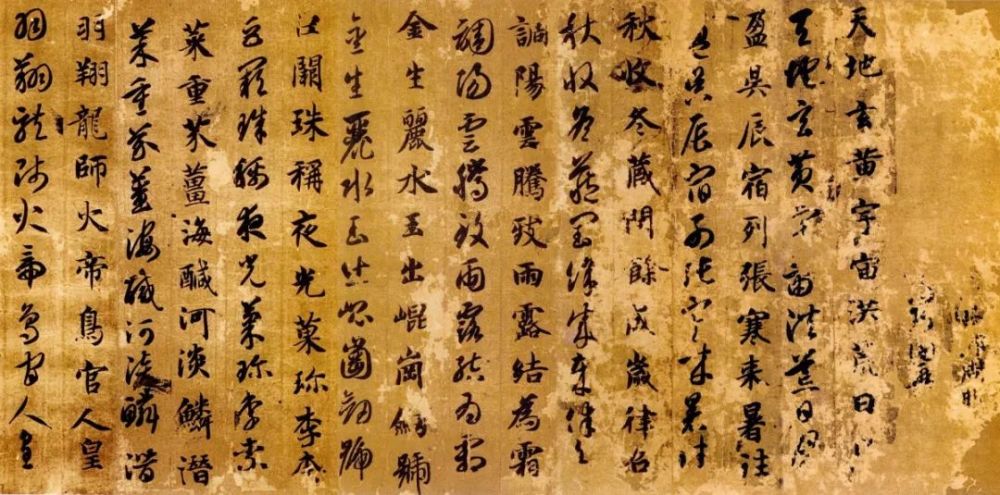 天地玄黄宇宙洪荒日
天地玄黄宇宙洪荒日月
盈昃辰宿列張寒来暑往
盈昃辰宿列張寒来暑往
秋收冬藏閏餘成歲律召
秋收冬藏閏餘成歲律召
調陽雲騰致雨露結為霜
調陽雲騰致雨露結為霜
金生麗水玉出崐崗劒號
金生麗水玉出崐崗劒號
巨闕珠稱夜光菓珍李柰
巨闕珠稱夜光菓珍李柰
菜重芥薑海醎河淡鱗潛
菜重芥薑海醎河淡鱗潛
羽翔龍師火帝鳥官人皇
羽翔龍師火帝鳥官人皇